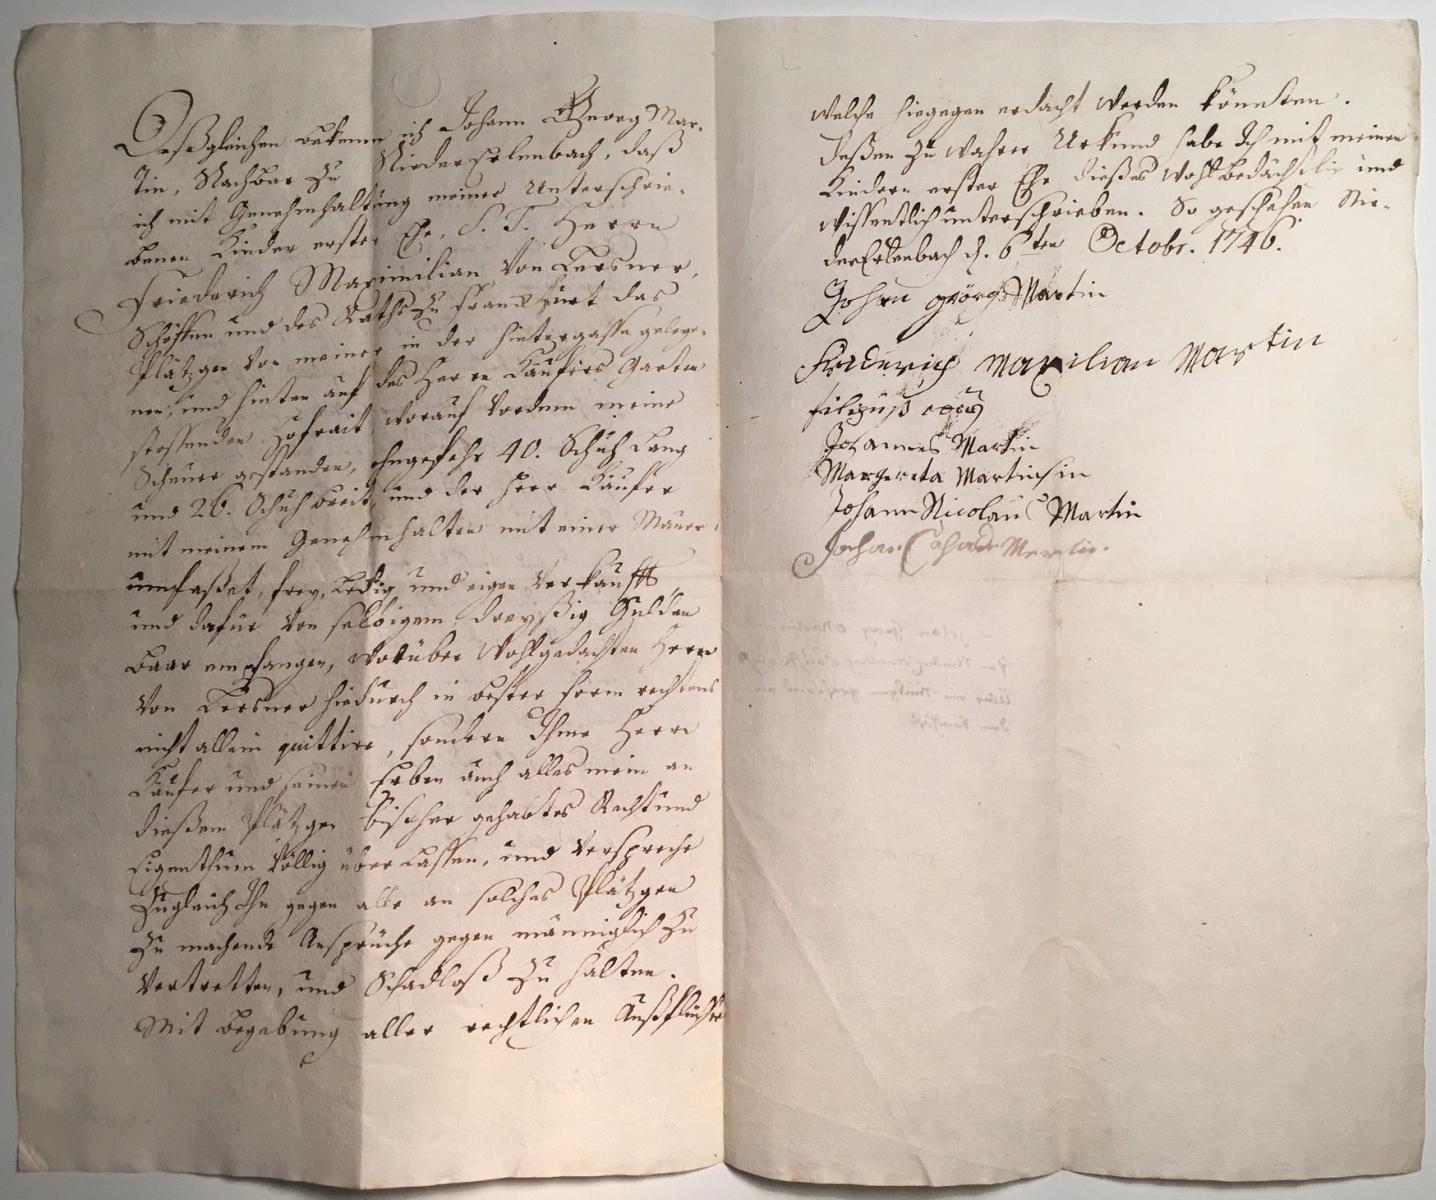 Deßgleichen bekenne ich Johann Georg Mar-
tin, Nachbar zu Nieder Erlenbach, daß
ich mit Genehmhaltung meiner Unterschrie-
benen Kinder erster Ehe, S. T. Herrn
Friederich Maximilian Von Lersner,
Schöffen und des Raths zu Franckfurt das
Plätzgen von meiner in der Hintergasse gelege-
nen, und hinten auf des Herrn Käufers Garten
stossenden Hofrait, worauf vordem meine
Scheuer gestanden, ohngefehr 40. Schuh Lang
und 26. Schuh breit, und der Herr Käufer
mit meinem Genehmhalten mit einer Mauer
umfaßet, frey, Ledig und eigen Verkaufft
und dafür von selbigem dreyßig Gulden
baar empfangen, worüber Wohlgedachten Herrn
Von Lersner hiedurch in bester form rechtens
nicht allein quittire, sondern Ihme Herrn
Käufer und seinen Erben auch alles mein an
dießem Plätzgen bischer gehabtes Recht und
Eigenthum Völlig überlassen, und Verspreche
zugleich Ihn gegen alle an solches Plätzgen
zu machende Ansprüche gegen männiglich zu
Vertretten, und Schadloß zu halten.
Mit begebung aller rechtlichen Außflüchte
welche hiegegen erdacht werden könnten.
Deßen zu wahrer Urkund habe Ich mit meinen
Kindern erster Ehe dießes wohlbedächtlich und
wissentlich unterschrieben. So geschehen Nie-
der Erlenbach d. 6ten Octobr. 1746.
Johan görg Martin
Friderich Maxilian Martin
Johannes Martin
Margereta Martinsin
Johann Nicolaus Martin
Johan Martin